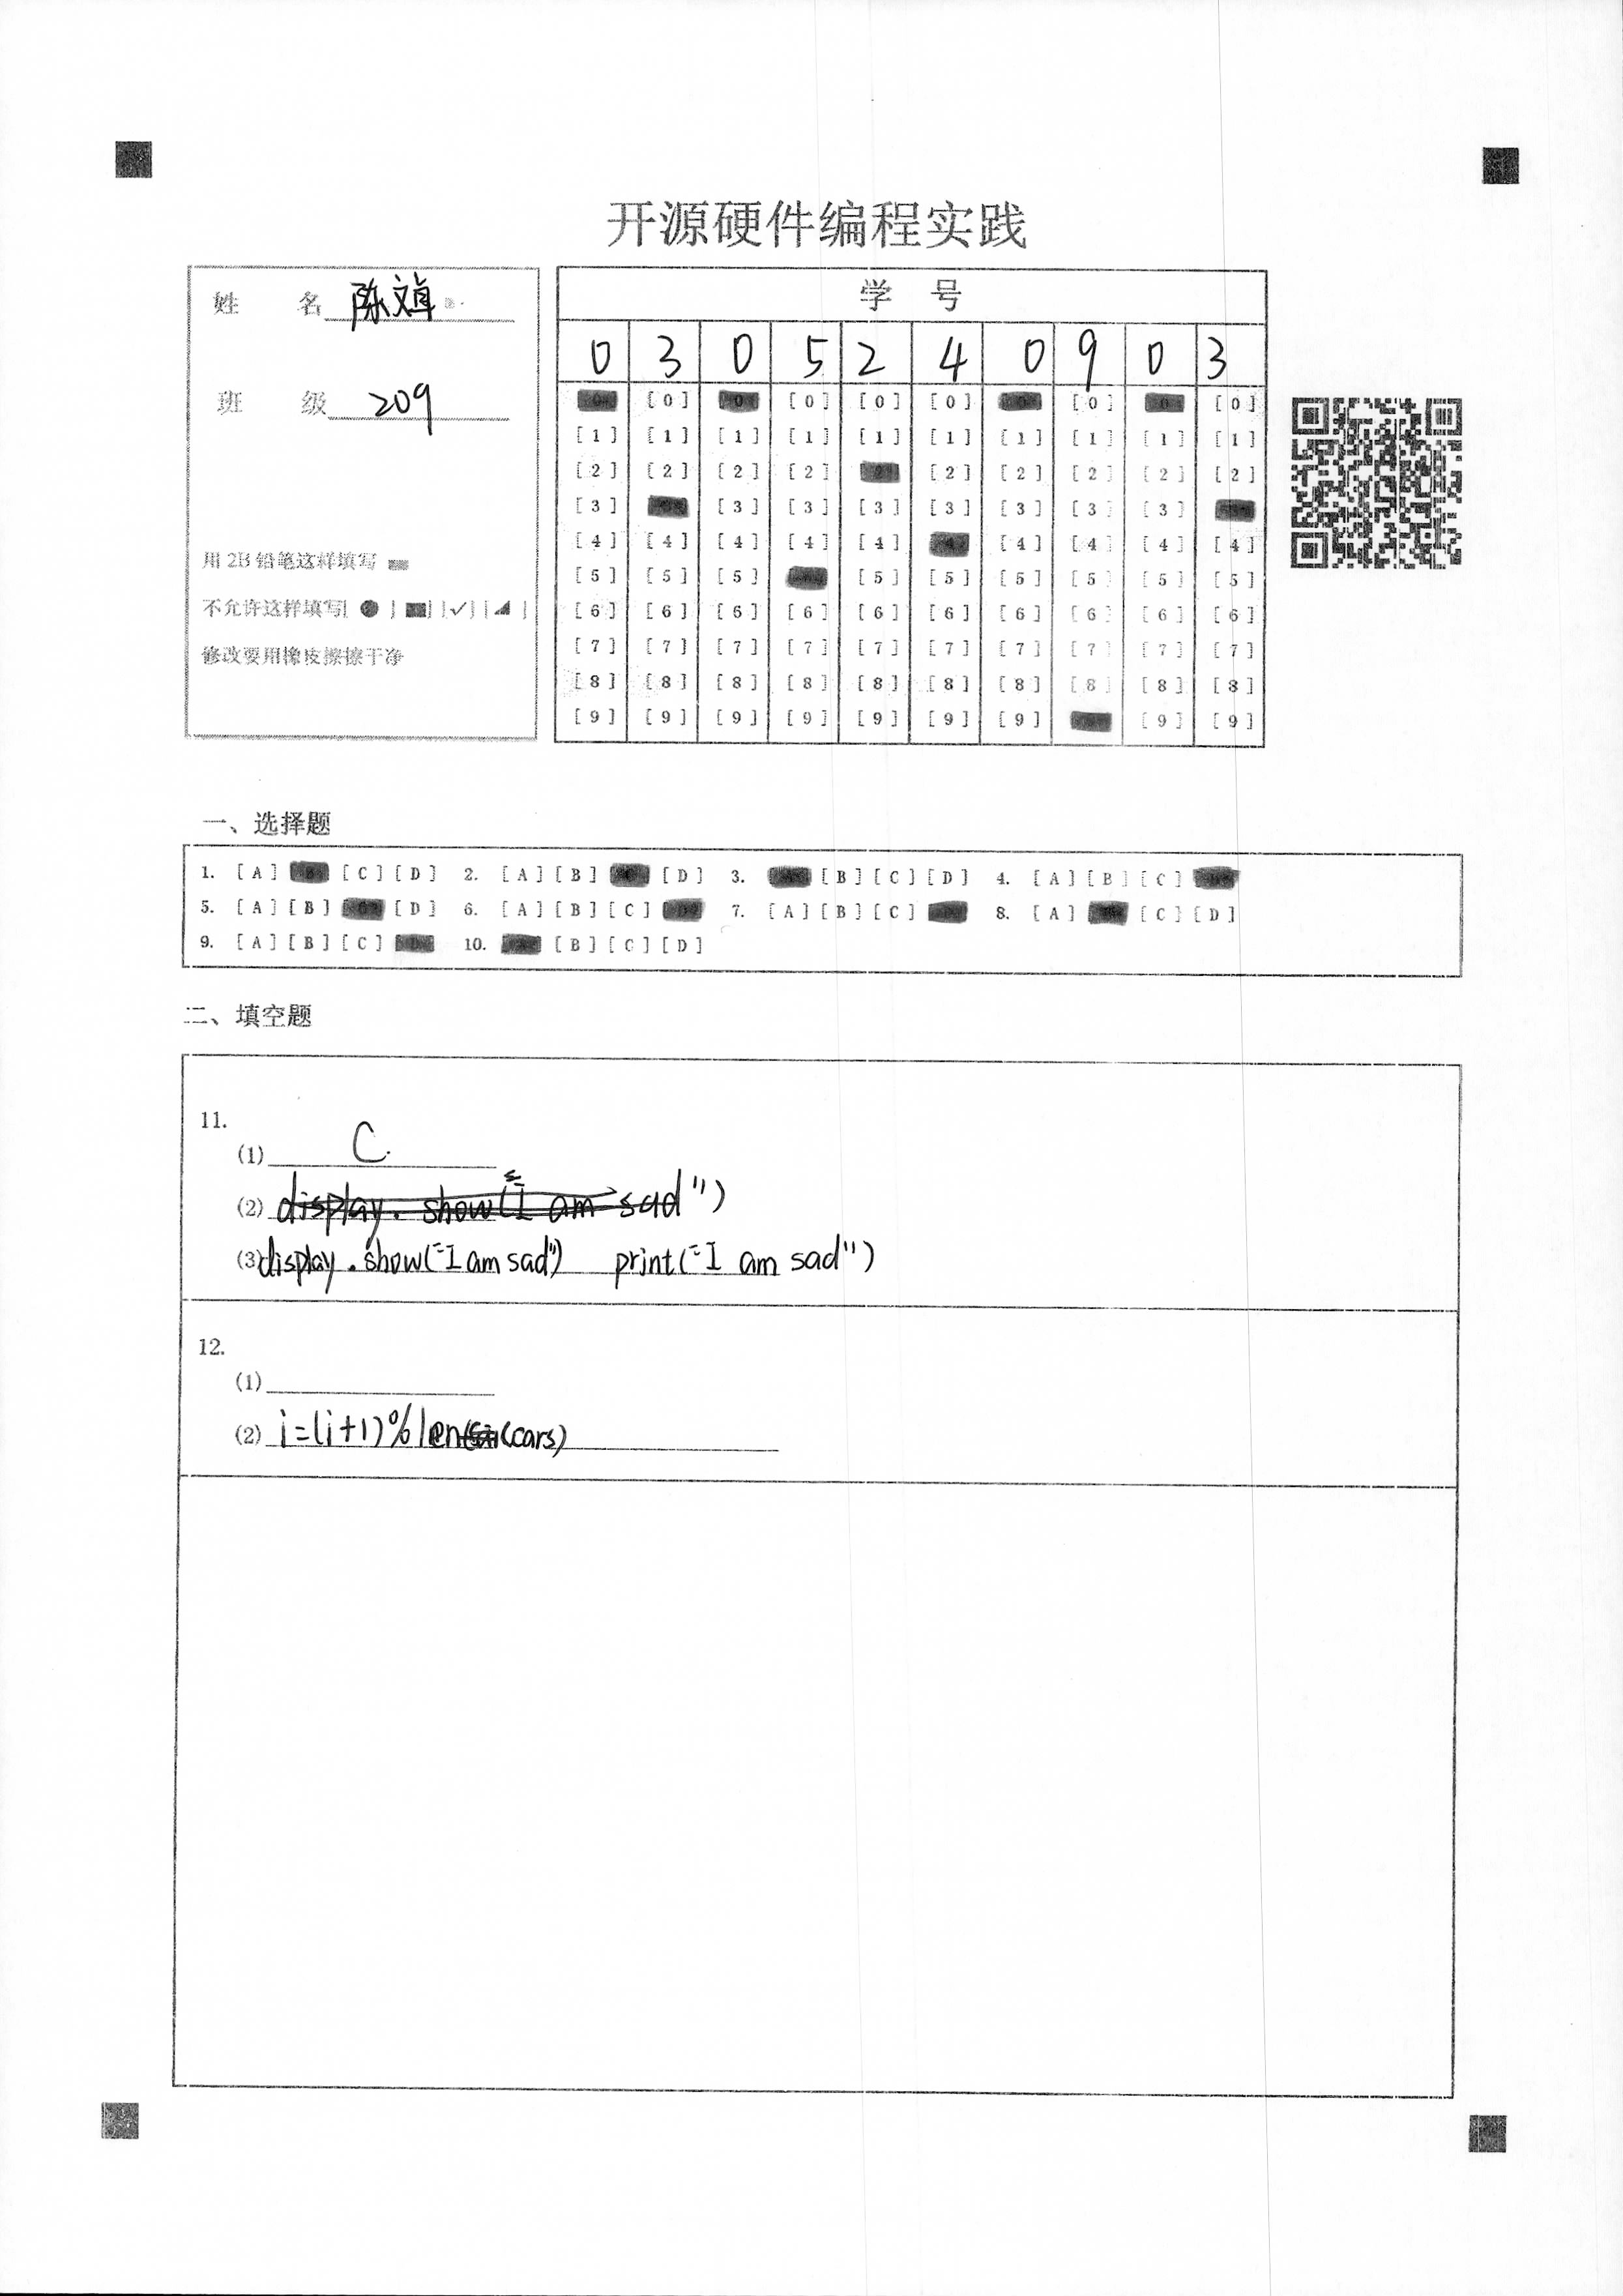 开源硬件编程实践
姓 名 陈文卓
班 级 209
用 2B 铅笔这样填写
不允许这样填写[ ● ] [■] [✓] [◢ ]
修改要用橡皮擦擦干净
学 号
0 3 0 5 2 4 0 9 0 3
[0] [0] [0] [0] [0] [0]
[1] [1] [1] [1] [1] [1] [1] [1] [1] [1]
[2] [2] [2] [2] [2] [2] [2] [2] [2]
[3] [3] [3] [3] [3] [3] [3] [3]
[4] [4] [4] [4] [4] [4] [4] [4] [4]
[5] [5] [5] [5] [5] [5] [5] [5] [5]
[6] [6] [6] [6] [6] [6] [6] [6] [6] [6]
[7] [7] [7] [7] [7] [7] [7] [7] [7] [7]
[8] [8] [8] [8] [8] [8] [8] [8] [8] [8]
[9] [9] [9] [9] [9] [9] [9] [9] [9]
一、选择题
1. [A] [C] [D] 2. [A] [B] [D] 3. [B] [C] [D] 4. [A] [B] [C]
5. [A] [B] [D] 6. [A] [B] [C] 7. [A] [B] [C] 8. [A] [C] [D]
9. [A] [B] [C] 10. [B] [C] [D]
二、填空题
11.
(1) C
(2) display. show("I am sad")
(3) display.show("I am sad") print("I am sad")
12.
(1)
(2) i=(i+1)%len(cars)